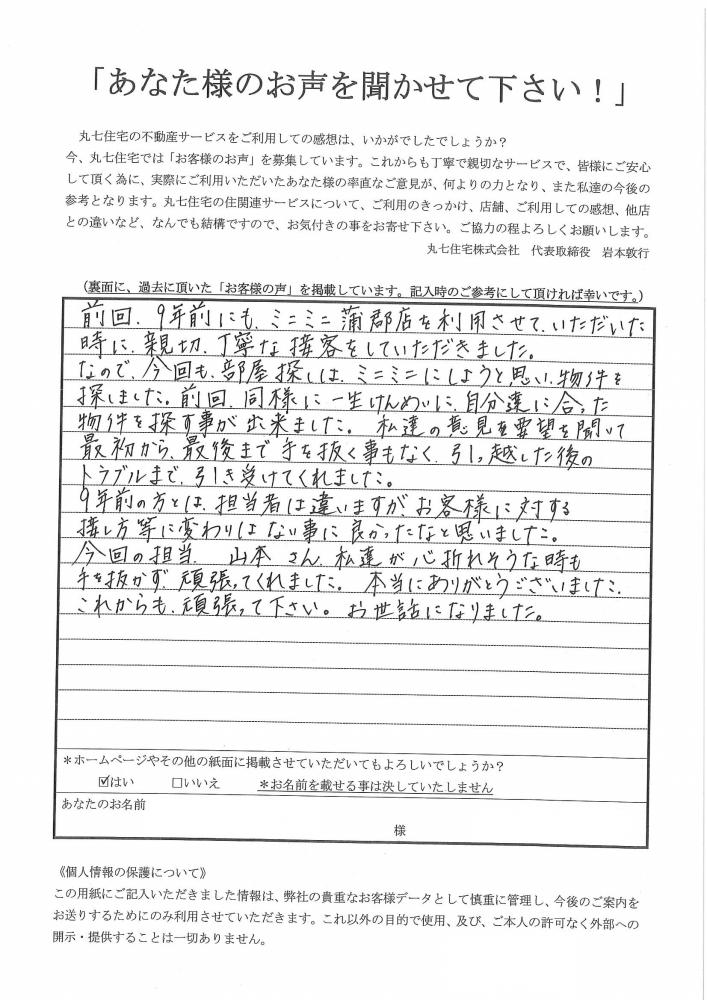 「あなた様のお声を聞かせて下さい！」
丸七住宅の不動産サービスをご利用しての感想は、いかがでしたでしょうか？
今、丸七住宅では「お客様のお声」を募集しています。これからも丁寧で親切なサービスで、皆様にご安心
して頂く為に、実際にご利用いただいたあなた様の率直なご意見が、何よりの力となり、また私達の今後の
参考となります。丸七住宅の住関連サービスについて、ご利用のきっかけ、店舗、ご利用しての感想、他店
との違いなど、なんでも結構ですので、お気付きの事をお寄せ下さい。ご協力の程よろしくお願いします。
丸七住宅株式会社　代表取締役　岩本敦行
（裏面に、過去に頂いた「お客様の声」を掲載しています。記入時のご参考にして頂ければ幸いです。）
前回、9年前にも、ミニミニ蒲郡店を利用させて、いただいた
時に、親切、丁寧な接客をしていただきました。
なので、今回も、部屋探しは、ミニミニにしようと思い、物件を
探しました。前回、同様に一生けんめいに、自分達に合った
物件を探す事が出来ました。私達の意見を要望を聞いて
最初から、最後まで手を抜く事もなく、引っ越した後の
トラブルまで、引き受けてくれました。
9年前の方とは、担当者は違いますがお客様に対する
接し方等に変わりはない事に良かったなと思いました。
今回の担当、山本さん、私達が心折れそうな時も
手を抜かず、頑張ってくれました。本当にありがとうございました。
これからも、頑張って下さい。お世話になりました。
＊ホームページやその他の紙面に掲載させていただいてもよろしいでしょうか？
☑はい　□いいえ　＊お名前を載せる事は決していたしません
あなたのお名前
様
《個人情報の保護について》
この用紙にご記入いただきました情報は、弊社の貴重なお客様データとして慎重に管理し、今後のご案内を
お送りするためにのみ利用させていただきます。これ以外の目的で使用、及び、ご本人の許可なく外部への
開示・提供することは一切ありません。